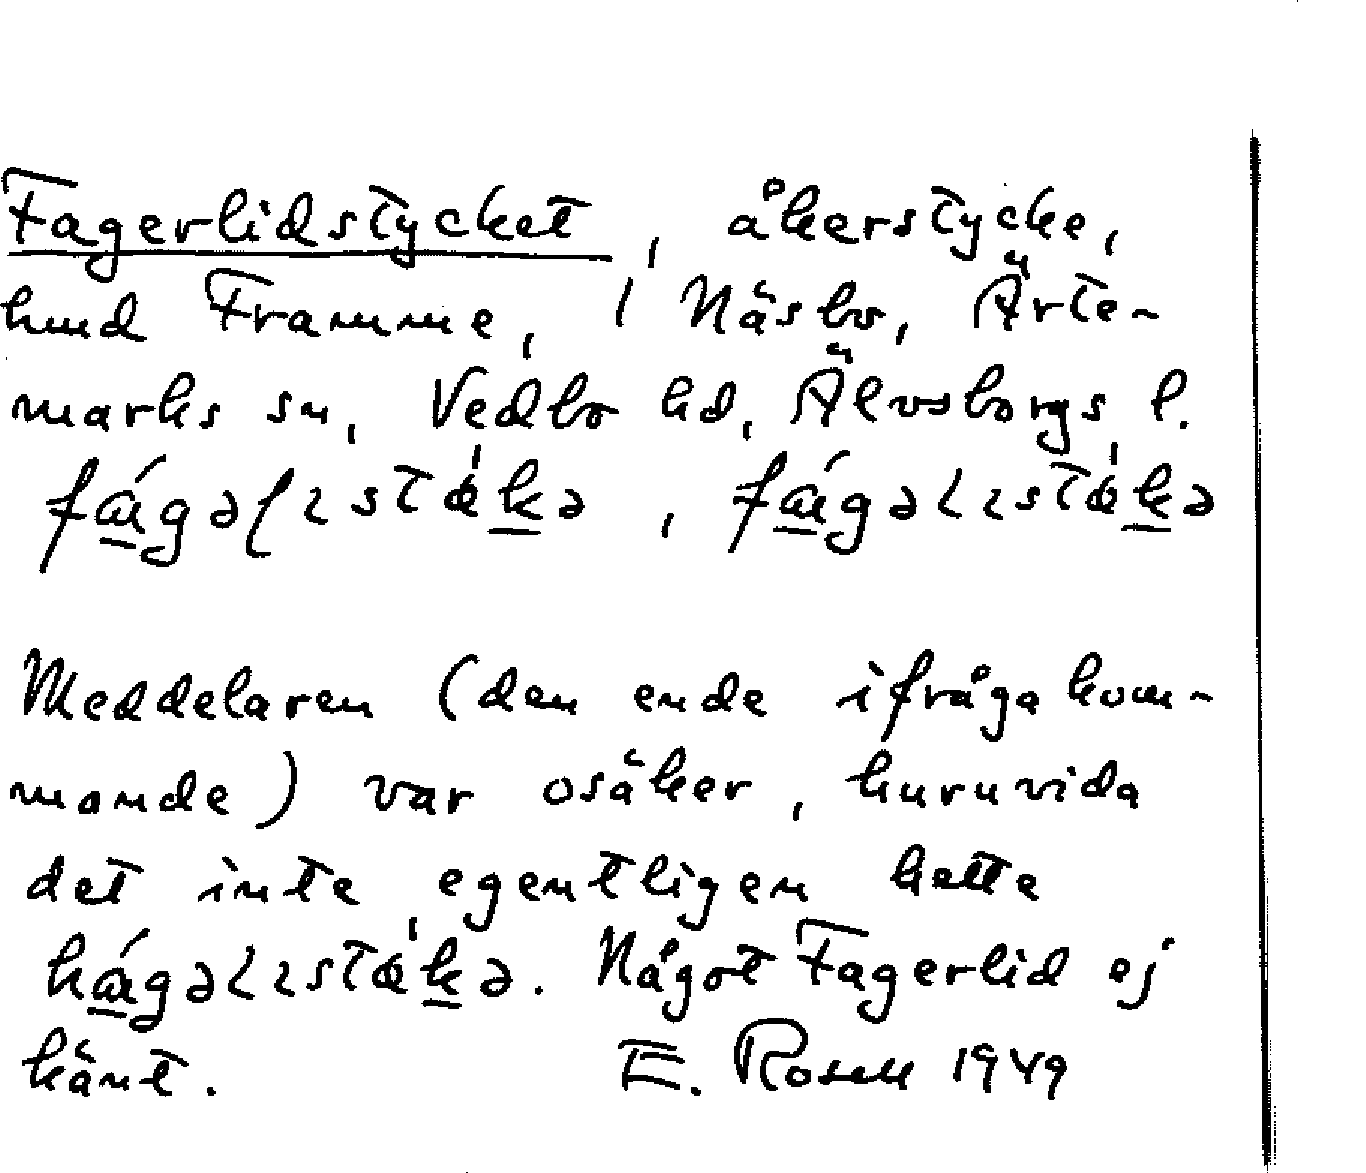 Fagerlidstycket, åkerstycke,
hmd Framme, i Näsbo, Ärte-
marks sn, Vedbo hd, Älvsborgs l.
Meddelaren (den ende ifrågakom-
mande) var osäker, huruvida
det inte egentligen hette
Något Fagerlid ej
känt. E. Rosell 1949